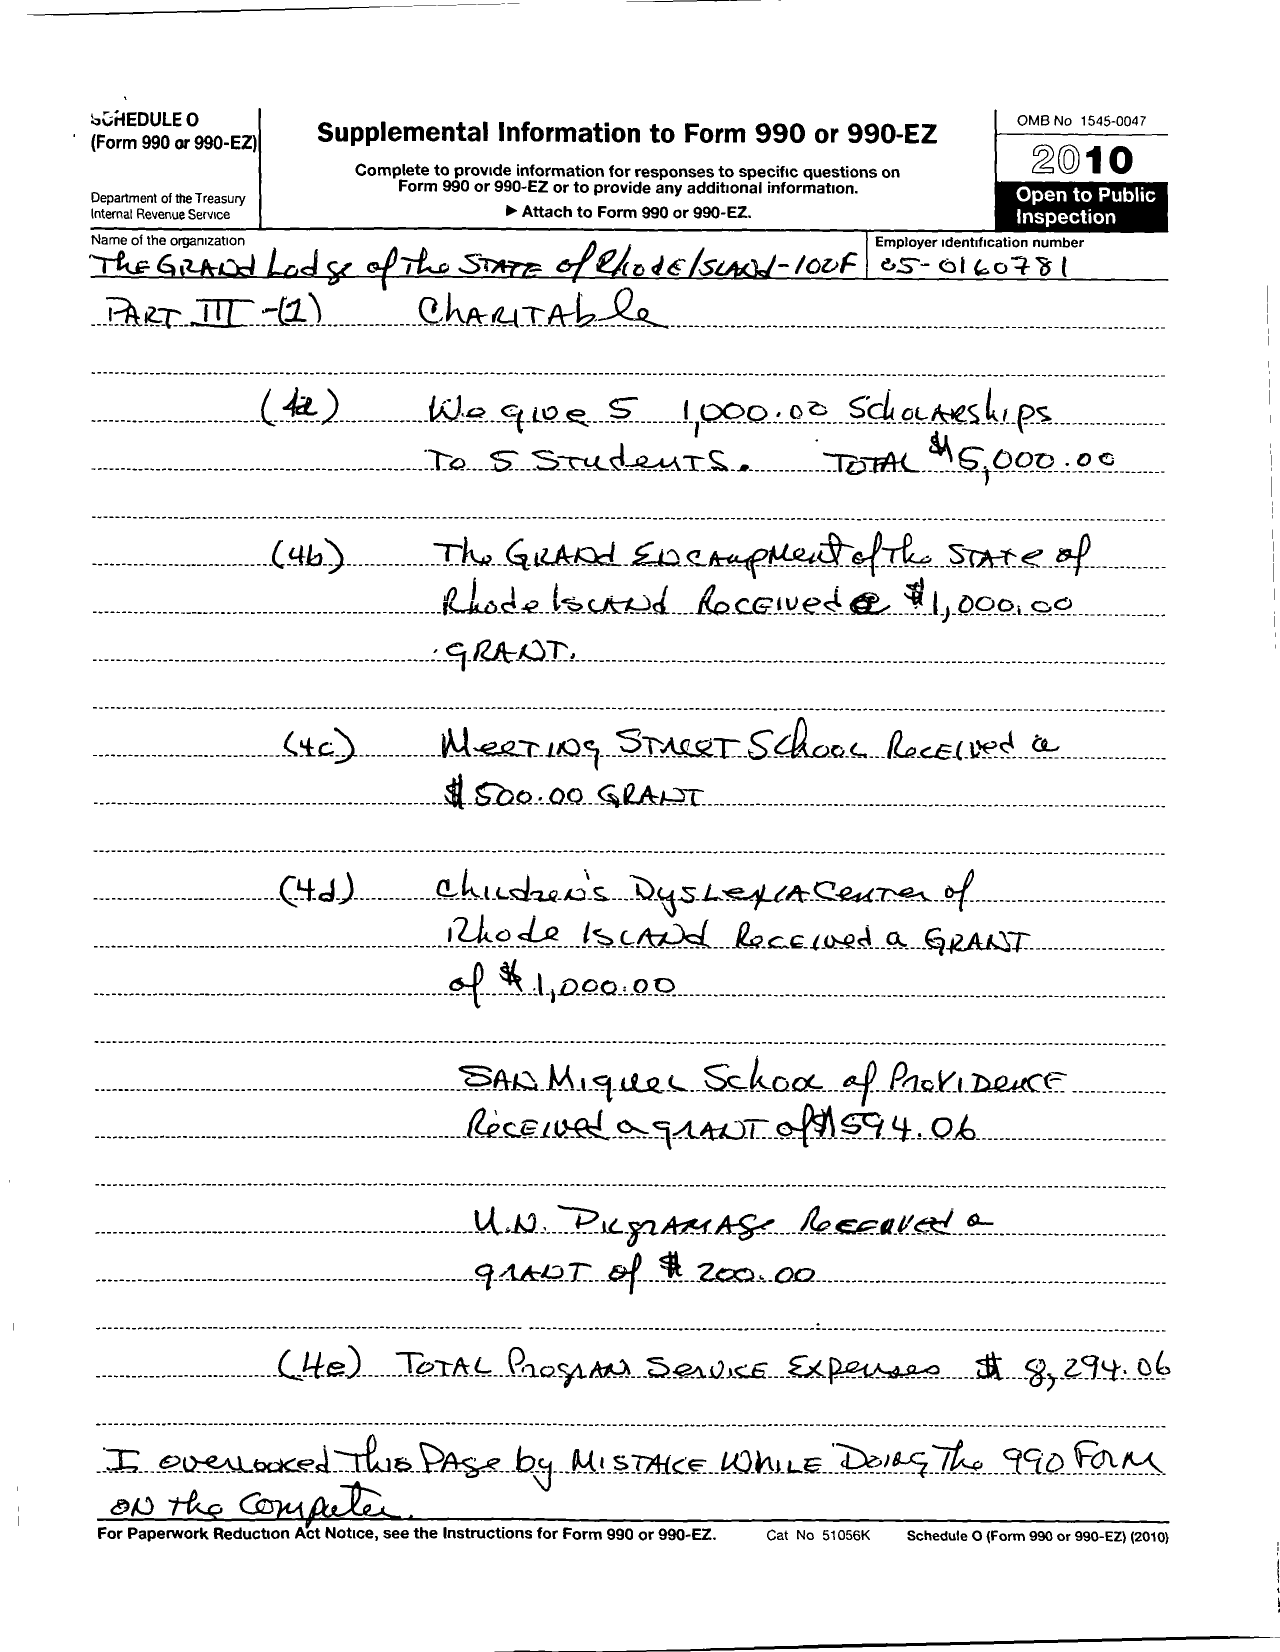 SCHEDULE O
(Form 990 or 990-EZ)
Department of the Treasury
Internal Revenue Service
Supplemental Information to Form 990 or 990-EZ
Complete to provide information for responses to specific questions on
Form 990 or 990-EZ or to provide any additional information.
▶ Attach to Form 990 or 990-EZ.
OMB No 1545-0047
2010
Open to Public
Inspection
Name of the organization
The GRAND Lodge of The STATE of Rhode ISLAND-IOOF
Employer identification number
05-0160781
PART III-(1) CHARITAble
(4a) We give 5 1,000.00 Scholarships
To 5 Students. TOTAL $5,000.00
(4b) The GRAND ENCAMPMENT of The STATE of
Rhode ISLAND Received a $1,000.00
GRANT.
(4c) MEETING STREET School Received a
$500.00 GRANT
(4d) Children's Dyslexia Center of
Rhode ISLAND Received a GRANT
of $1,000.00
SAN Miguel School of Providence
Received a GRANT of $594.06
U.N. Pilgramage Received a
GRANT of $200.00
(4e) TOTAL Program Service Expenses $8,294.06
I overlooked This Page by MISTAKE WHILE Doing The 990 Form
ON The Computer.
For Paperwork Reduction Act Notice, see the Instructions for Form 990 or 990-EZ.
Cat No 51056K
Schedule O (Form 990 or 990-EZ) (2010)